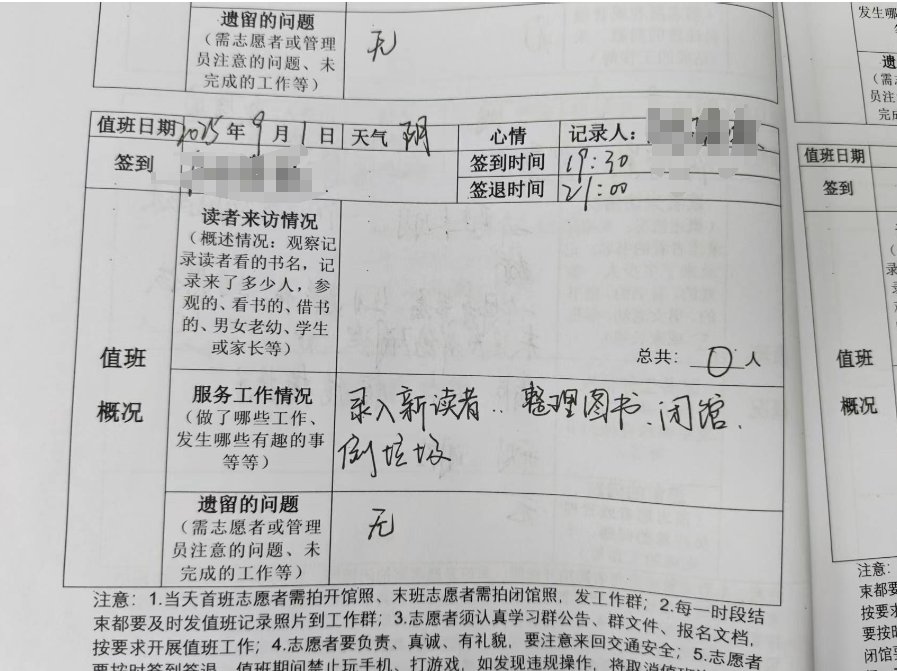 遗留的问题
（需志愿者或管理
员注意的问题、未
完成的工作等）
无
值班日期 2025 年 9 月 1 日 天气 阴 心情 记录人：
签到 签到时间 19:30
签退时间 21:00
值班
概况
读者来访情况
（概述情况：观察记
录读者看的书名，记
录来了多少人，参
观的、看书的、借书
的、男女老幼、学生
或家长等）
总共： 0 人
服务工作情况
（做了哪些工作、
发生哪些有趣的事
等等）
录入新读者、整理图书、闭馆、
倒垃圾
遗留的问题
（需志愿者或管理
员注意的问题、未
完成的工作等）
无
注意：1.当天首班志愿者需拍开馆照、末班志愿者需拍闭馆照，发工作群；2.每一时段结
束都要及时发值班记录照片到工作群；3.志愿者须认真学习群公告、群文件、报名文档，
按要求开展值班工作；4.志愿者要负责、真诚、有礼貌，要注意来回交通安全；5.志愿者
要按时签到签退，值班期间禁止玩手机、打游戏，如发现违规操作，将取消值班
发生哪
遗
（需
员注
完成
值班日期
签到
值班
概况
注意：
束都要
按要求
要按时
闭馆